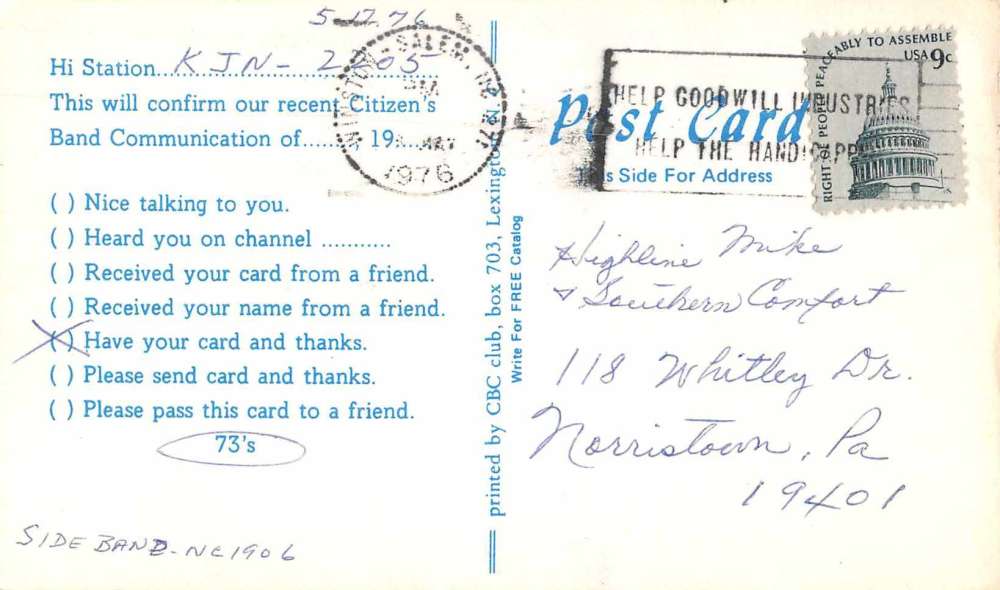 5-17-76
Hi Station...KJN-2205
This will confirm our recent Citizen's
Band Communication of........, 19.....
( ) Nice talking to you.
( ) Heard you on channel ...........
( ) Received your card from a friend.
( ) Received your name from a friend.
(X) Have your card and thanks.
( ) Please send card and thanks.
( ) Please pass this card to a friend.
73's
SIDE BAND-NC1906
WINSTON-SALEM, NC 271
PM
MAY
1976
printed by CBC club, box 703, Lexington
Write For FREE Catalog
Post Card
This Side For Address
HELP GOODWILL INDUSTRIES
HELP THE HANDICAPPED
RIGHT OF PEOPLE PEACEABLY TO ASSEMBLE
USA 9c
Highline Mike
& Southern Comfort
118 Whitley Dr.
Norristown, Pa
19401